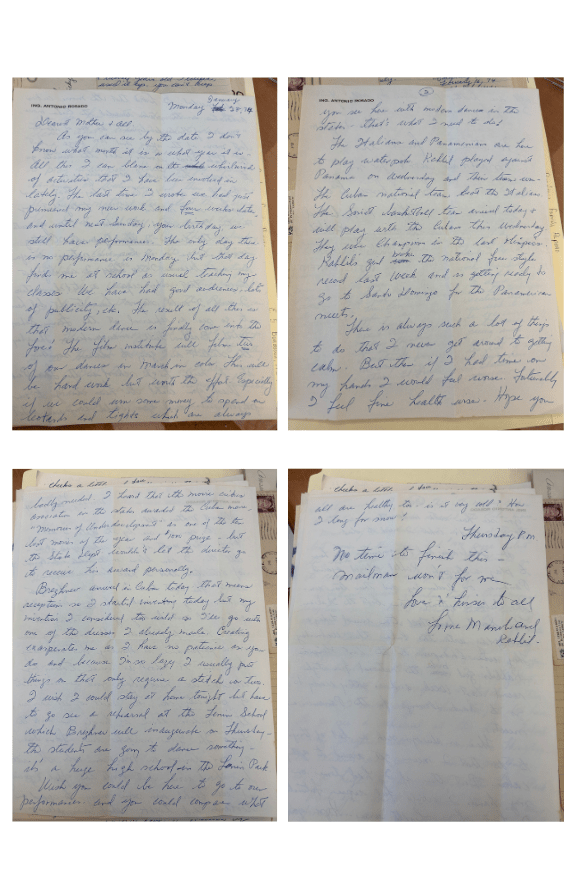 ING. ANTONIO ROSADO
January
Monday 28, 74
Dearest Mother & all
As you can see by the date I don't
know what month it is or what year it is.
All this I can blame on the whirlwinds
of activities that I have been involved in
lately. The last time I wrote we had just
premiered my new work and four weeks later,
and until next Sunday, your birthday we
still have performances. The only day there
is no performance is Monday, but that day
finds me at school as usual teaching my
classes. We have had good audiences, lots
of publicity, etc. The result of all this is
that modern dance is finally coming into the
fore! The film institute will film two
of our dances in March in color. This will
be hard work but worth the effort. Especially
if we could earn some money to spend on
leotards and tights which are always
badly needed. I heard that the movie critics
association in the states awarded the Cuban movie
"Memories of Underdevelopment" as one of the ten
best movies of the year and prize - but
the State Dept wouldn't let the director go
to receive his award personally.
Brezhnev arrived in Cuba today, that means
reception so I started inventing today but my
invention I considered too wild so I'll go with
one of the dresses I already made. Creating
exasperates me as I have no patience as you
do and because I'm so lazy I usually put
things on that only require a stitch or two.
I wish I could stay at home tonight but have
to go see a rehearsal at the Lenin School
which Brezhnev will inaugurate on Thursday -
the students are going to dance something -
it's a huge high school in the Lenin Park
Wish you could be here to go to our
performances and you could compare what
3
ING. ANTONIO ROSADO
you see here with modern dance in the
States - that's what I need to do!
The Italians and Panamanians are here
to play waterpolo Rabbit played against
Panama on Wednesday and their team won.
The Cuban national team beat the Italian.
The Soviet basketball team arrived today &
will play with the Cubans this Wednesday.
They were Champions in the last Olympics.
Rabbit's girl broke the national free style
record last week and is getting ready to
go to Santo Domingo for the Panamerican
meets.
There is always such a lot of things
to do that I never get around to getting
calm. But then if I had time on
my hands I would feel worse. Fortunately
I feel fine health wise. Hope you
all are healthy too - is it very cold? How
I long for snow!
Thursday P.M
No time to finish this -
mailman won't for me
Love 'n' kisses to all
and
Rabbit.